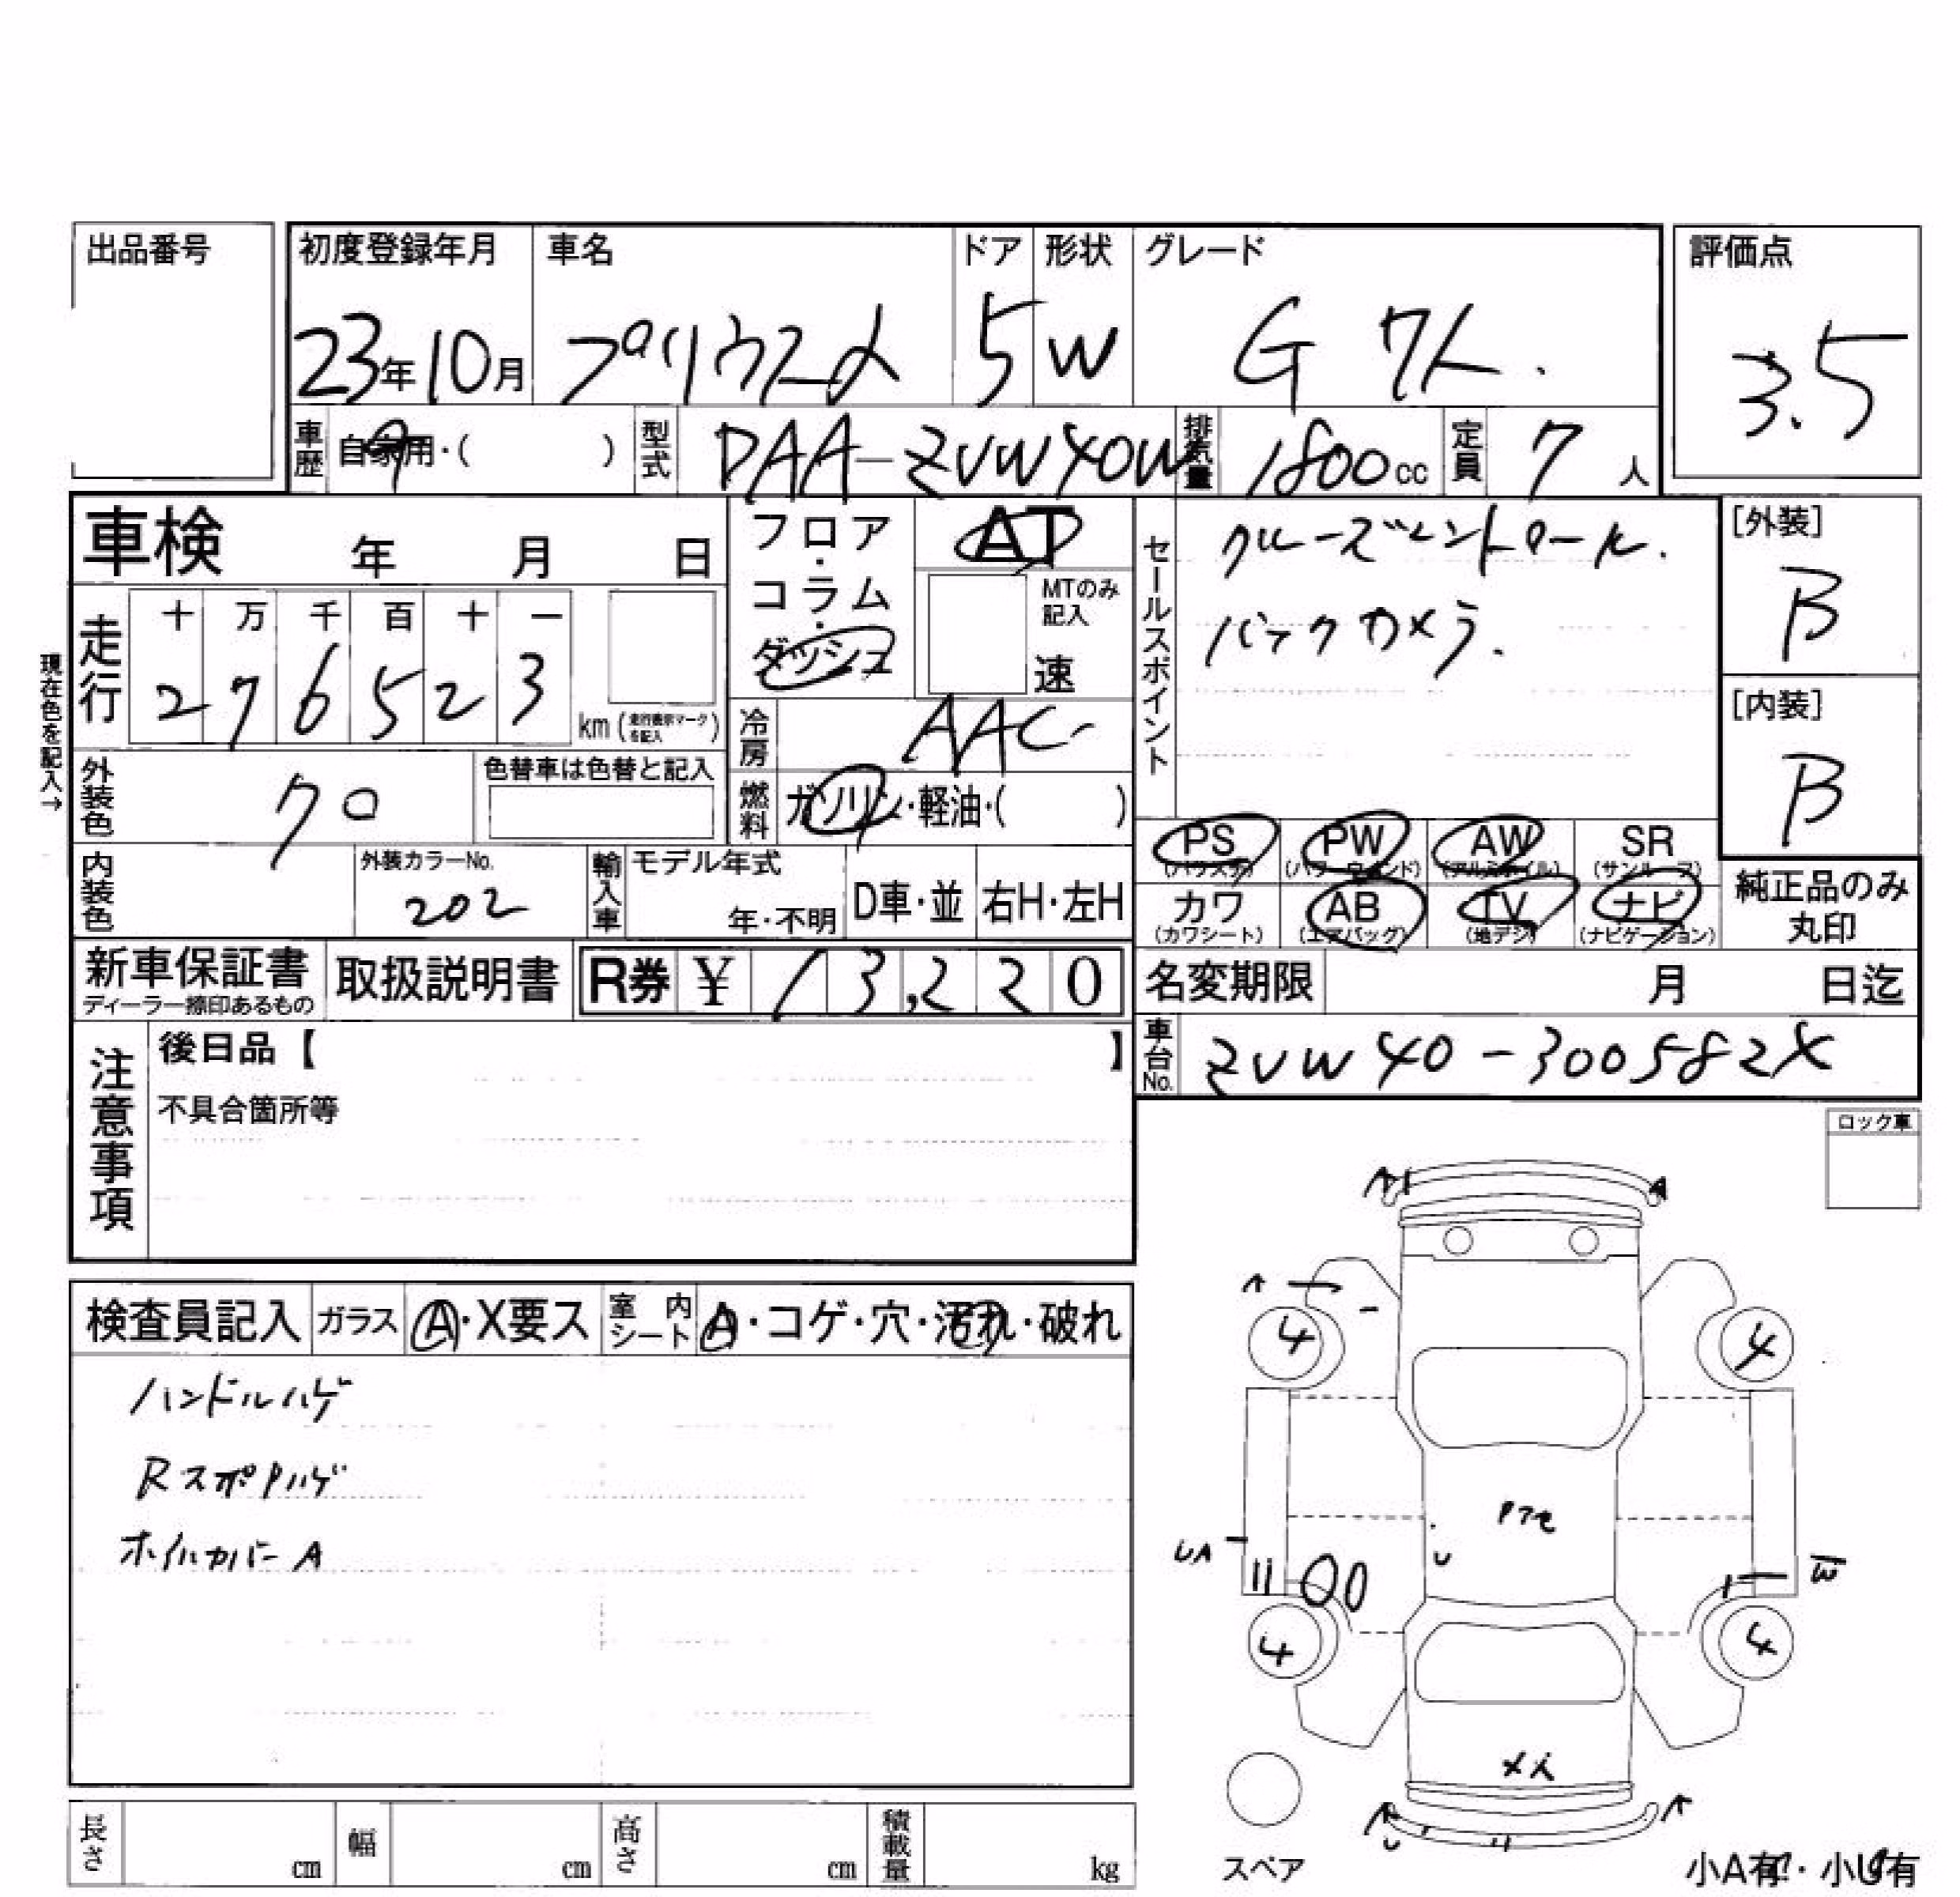 出品番号
初度登録年月 車名 ドア 形状 グレード 評価点
23年10月 プリウスα 5 W G 7人. 3.5
車歴 自家用・( ) 型式 DAA-ZVW40W 排気量 1800cc 定員 7人
車検 年 月 日
フロア・コラム・ダッシュ AT
MTのみ記入
速
セールスポイント クルーズコントロール.
バックカメラ.
[外装] B
[内装] B
現在色を記入→
走行 十 万 千 百 十 一
276523 km (走行表示マークを記入)
冷房 AAC
外装色 クロ 色替車は色替と記入
燃料 ガソリン・軽油・( )
PS (パワステ) PW (パワーウィンド) AW (アルミホイル) SR (サンルーフ)
カワ (カワシート) AB (エアバッグ) TV (地デジ) ナビ (ナビゲーション)
純正品のみ丸印
内装色 外装カラーNo. 202
輸入車 モデル年式 年・不明 D車・並 右H・左H
新車保証書 ディーラー捺印あるもの 取扱説明書 R券 ¥ 13,220
名変期限 月 日迄
車台No. ZVW40-300582X
注意事項 後日品【 】
不具合箇所等
ロック車
検査員記入 ガラス A・X要ス 室内シート A・コゲ・穴・汚れ・破れ
ハンドルハゲ
RスポPハゲ
ホイルカバーA
A A
4 4
UA W
4 4
スペア
小A有・小U有
長さ cm 幅 cm 高さ cm 積載量 kg